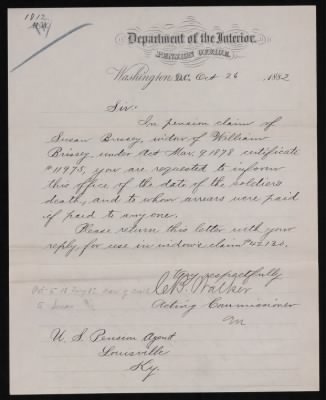 1812
Department of the Interior,
PENSION OFFICE,
Washington, D.C. Oct 26, 1882
Sir:
In pension claim of
Susan Brisey, widow of William
Brisey, under Act Mar. 9 1878 certificate
#11975, you are requested to inform
this office of the date of the soldiers
death, and to whom arrears were paid
if paid to any one.
Please return this letter with your
reply for use in widow's claim #42120.
Very respectfully
C.B. Walker
Acting Commissioner
U. S. Pension Agent
Louisville
Ky.